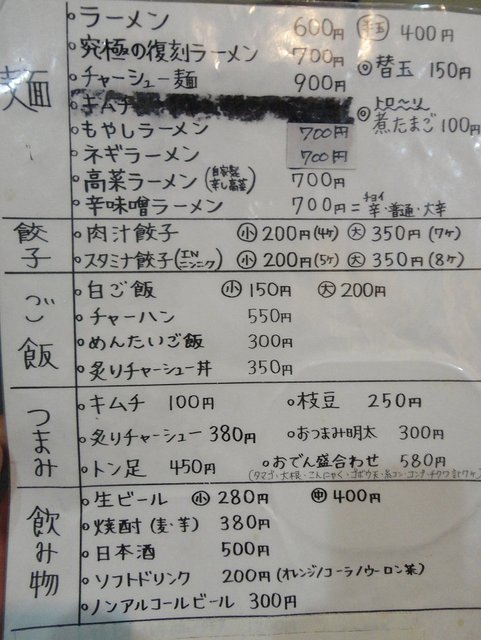 麺
・ラーメン 600円 半玉 400円
・究極の復刻ラーメン 700円 ◎替玉 150円
・チャーシュー麺 900円
・キムチ
◎トロ〜リ煮たまご 100円
・もやしラーメン 700円
・ネギラーメン 700円
・高菜ラーメン(自家製辛し高菜) 700円
・辛味噌ラーメン 700円=チョイ辛・普通・大辛
餃子
・肉汁餃子 小 200円(4ヶ) 大 350円(7ヶ)
・スタミナ餃子(INニンニク) 小 200円(5ヶ) 大 350円(8ヶ)
ご飯
・白ご飯 小 150円 大 200円
・チャーハン 550円
・めんたいご飯 300円
・炙りチャーシュー丼 350円
つまみ
・キムチ 100円 ・枝豆 250円
・炙りチャーシュー 380円 ・おつまみ明太 300円
・トン足 450円 ・おでん盛合わせ 580円
(タマゴ・大根・こんにゃく・ゴボウ天・糸コン・コンブ・チクワ計7ヶ)
飲み物
・生ビール 小 280円 中 400円
・焼酎(麦・芋) 380円
・日本酒 500円
・ソフトドリンク 200円(オレンジ/コーラ/ウーロン茶)
・ノンアルコールビール 300円